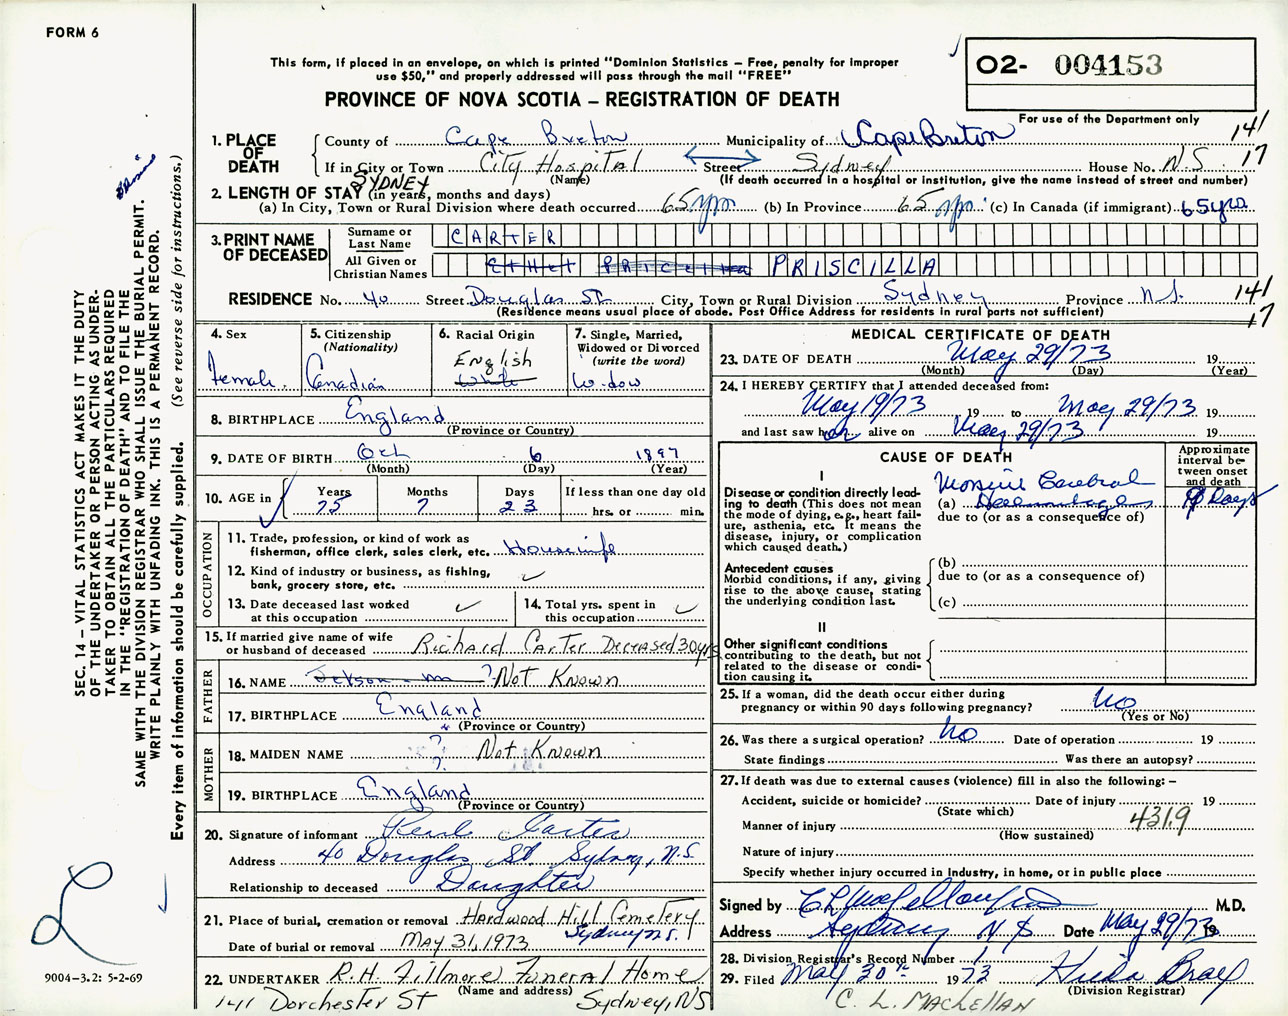 FORM 6
This form, if placed in an envelope, on which is printed "Dominion Statistics – Free, penalty for improper
use $50," and properly addressed will pass through the mail "FREE"
PROVINCE OF NOVA SCOTIA – REGISTRATION OF DEATH
O2- 004153
For use of the Department only
141
17
1. PLACE OF DEATH
County of Cape Breton Municipality of Cape Breton
If in City or Town City Hospital Street Sydney House No. N.S.
(Name) (If death occurred in a hospital or institution, give the name instead of street and number)
SYDNEY
2. LENGTH OF STAY (in years, months and days)
(a) In City, Town or Rural Division where death occurred 65 yrs (b) In Province 65 yrs (c) In Canada (if immigrant) 65 yrs
3. PRINT NAME OF DECEASED
Surname or Last Name CARTER
All Given or Christian Names Ethel PRISCILLA
RESIDENCE No. 40 Street Douglas St. City, Town or Rural Division Sydney Province N.S.
(Residence means usual place of abode. Post Office Address for residents in rural parts not sufficient)
141
17
4. Sex
Female.
5. Citizenship
(Nationality)
Canadian
6. Racial Origin
English
White
7. Single, Married,
Widowed or Divorced
(write the word)
Widow
8. BIRTHPLACE England
(Province or Country)
9. DATE OF BIRTH Oct 6 1897
(Month) (Day) (Year)
10. AGE in
Years Months Days If less than one day old
75 7 23 hrs. or min.
OCCUPATION
11. Trade, profession, or kind of work as
fisherman, office clerk, sales clerk, etc. Housewife
12. Kind of industry or business, as fishing,
bank, grocery store, etc.
13. Date deceased last worked
at this occupation
14. Total yrs. spent in
this occupation
15. If married give name of wife
or husband of deceased Richard Carter Deceased 30 yrs
FATHER
16. NAME ? Not Known
17. BIRTHPLACE England
(Province or Country)
MOTHER
18. MAIDEN NAME ? ? Not Known
19. BIRTHPLACE England
(Province or Country)
20. Signature of informant Carter
Address 40 Douglas St. Sydney, N.S.
Relationship to deceased Daughter
21. Place of burial, cremation or removal Hardwood Hill Cemetery
Sydney N.S.
Date of burial or removal MAY 31, 1973
22. UNDERTAKER R.H. Fillmore Funeral Home
(Name and address)
141 Dorchester St Sydney, NS
MEDICAL CERTIFICATE OF DEATH
23. DATE OF DEATH May 29/73 19
(Month) (Day) (Year)
24. I HEREBY CERTIFY that I attended deceased from:
May 19/73 19 to May 29/73 19
and last saw her alive on May 29/73 19
CAUSE OF DEATH
Approximate
interval be-
tween onset
and death
I
Disease or condition directly lead-
ing to death (This does not
mean the mode of dying, e.g., heart fail-
ure, asthenia, etc. It means the
disease, injury, or complication
which caused death.)
Massive Cerebral
(a) Haemorrhage Days
due to (or as a consequence of)
Antecedent causes
Morbid conditions, if any, giving
rise to the above cause, stating
the underlying condition last.
(b)
due to (or as a consequence of)
(c)
II
Other significant conditions
contributing to the death, but not
related to the disease or condi-
tion causing it.
25. If a woman, did the death occur either during
pregnancy or within 90 days following pregnancy? No
(Yes or No)
26. Was there a surgical operation? No Date of operation 19
State findings Was there an autopsy?
27. If death was due to external causes (violence) fill in also the following: –
Accident, suicide or homicide? Date of injury 19
(State which)
Manner of injury 431.9
(How sustained)
Nature of injury
Specify whether injury occurred in Industry, in home, or in public place
Signed by M.D.
Address Sydney NS Date May 29/73 19
28. Division Registrar's Record Number
29. Filed May 30th 1973 Hilda Bray
(Division Registrar)
C. L. MacLellan
SEC. 14 – VITAL STATISTICS ACT MAKES IT THE DUTY
OF THE UNDERTAKER OR PERSON ACTING AS UNDER-
TAKER TO OBTAIN ALL THE PARTICULARS REQUIRED
IN THE "REGISTRATION OF DEATH" AND TO FILE THE
SAME WITH THE DIVISION REGISTRAR WHO SHALL ISSUE THE BURIAL PERMIT.
WRITE PLAINLY WITH UNFADING INK. THIS IS A PERMANENT RECORD.
Every item of information should be carefully supplied. (See reverse side for instructions.)
9004–3.2: 5-2-69